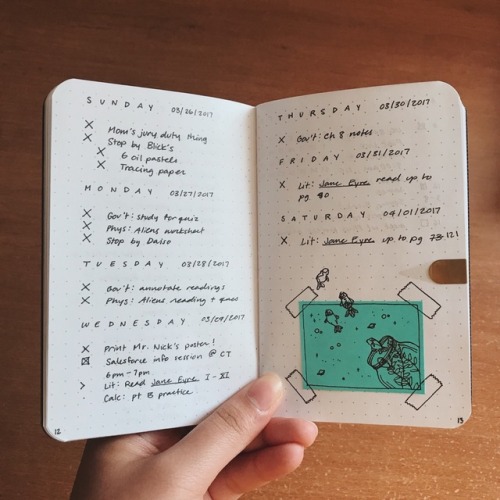 SUNDAY 03/26/2017
X Mom's jury duty thing
X Stop by Blick's
X 6 oil pastels
X Tracing paper
MONDAY 03/27/2017
X Gov't: study for quiz
X Phys: Aliens worksheet
X Stop by Daiso
TUESDAY 03/28/2017
X Gov't: annotate readings
X Phys: Aliens reading + ques
WEDNESDAY 03/29/2017
X Print Mr. Nick's poster!
X Salesforce info session @ CT
6pm - 7pm
> Lit: Read Jane Eyre I - XI
Calc: pt B practice
12
THURSDAY 03/30/2017
X Gov't: Ch 8 notes
FRIDAY 03/31/2017
X Lit: Jane Eyre read up to
pg. 80
SATURDAY 04/01/2017
X Lit: Jane Eyre up to pg 73-121
13